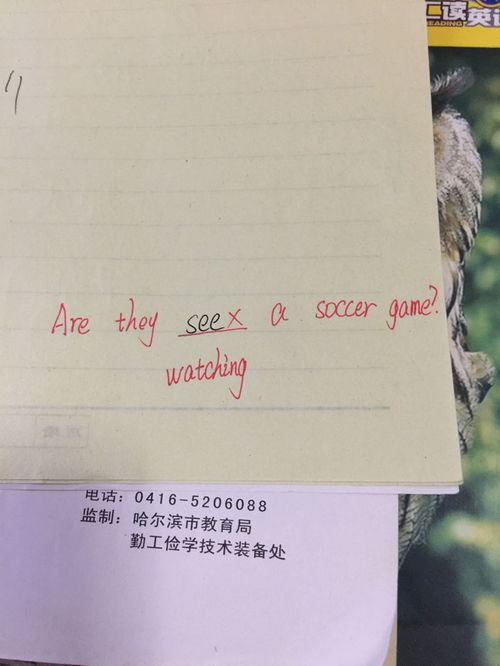 读英语
READING
Are they see× a soccer game?
watching
电话：0416-5206088
监制：哈尔滨市教育局
勤工俭学技术装备处